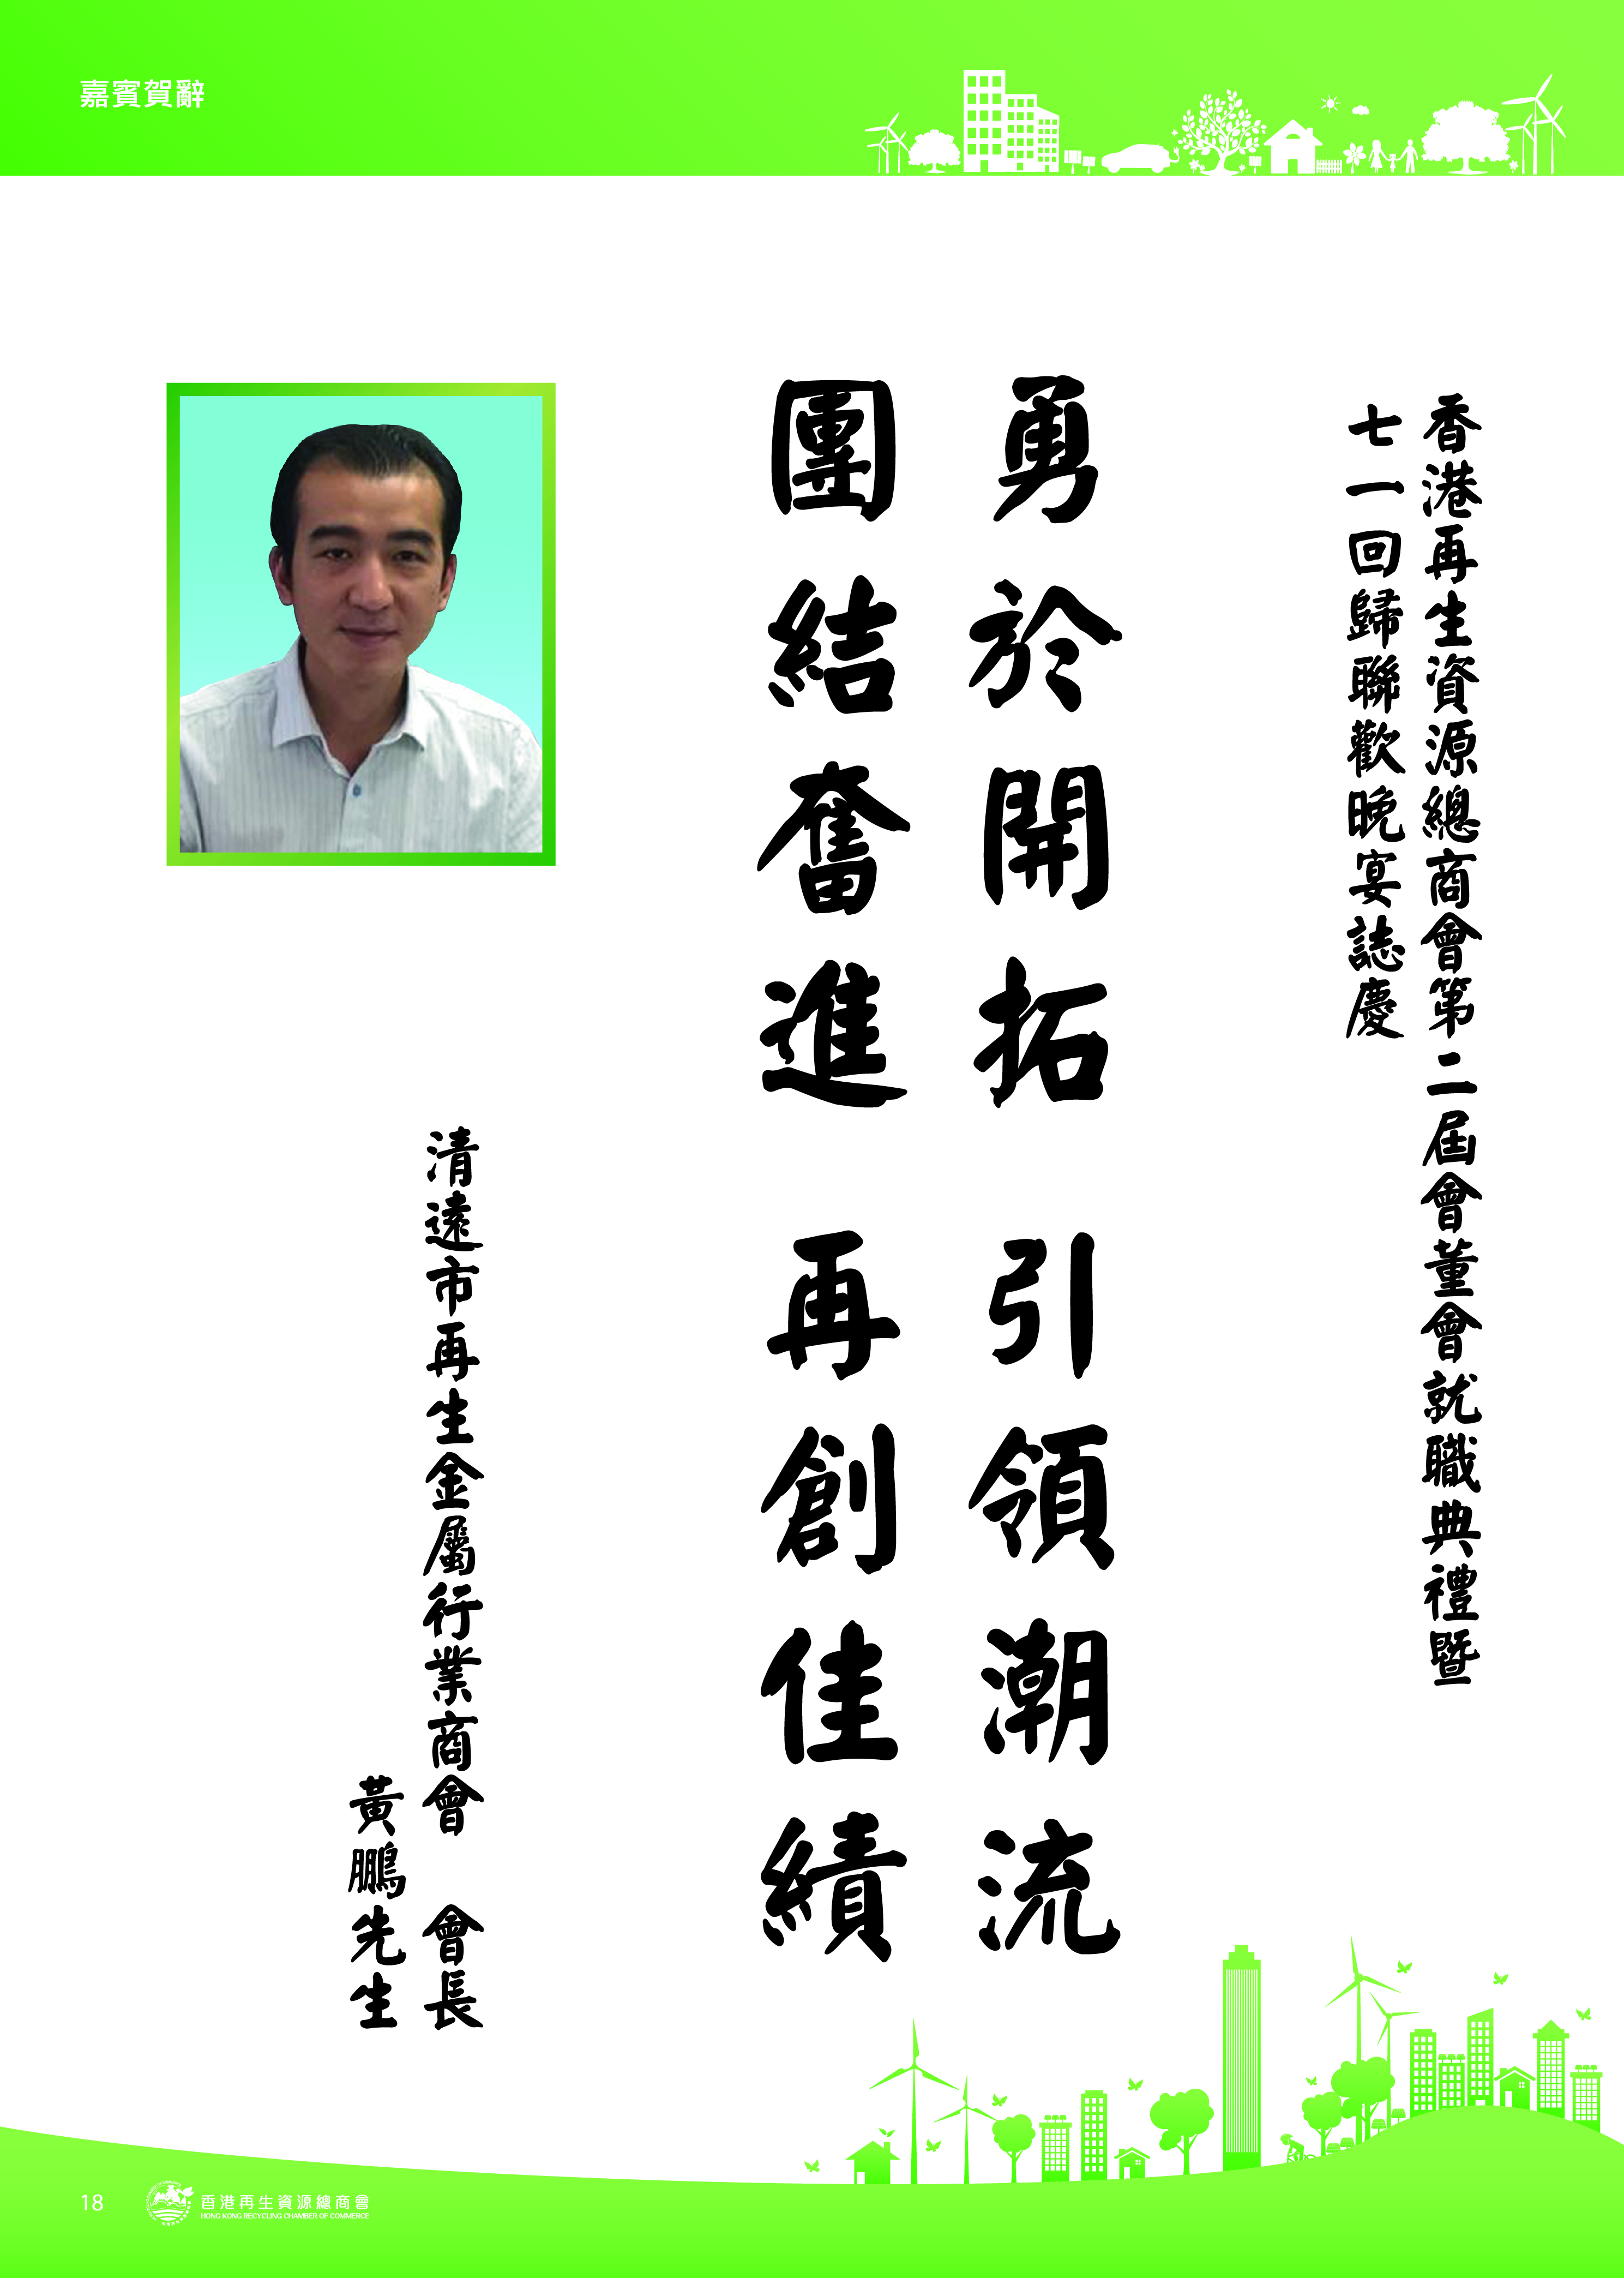 嘉賓賀辭
香港再生資源總商會第二屆會董會就職典禮暨
七一回歸聯歡晚宴誌慶
勇於開拓 引領潮流
團結奮進 再創佳績
清遠市再生金屬行業商會 會長
黃鵬先生
18
香港再生資源總商會
HONG KONG RECYCLING CHAMBER OF COMMERCE